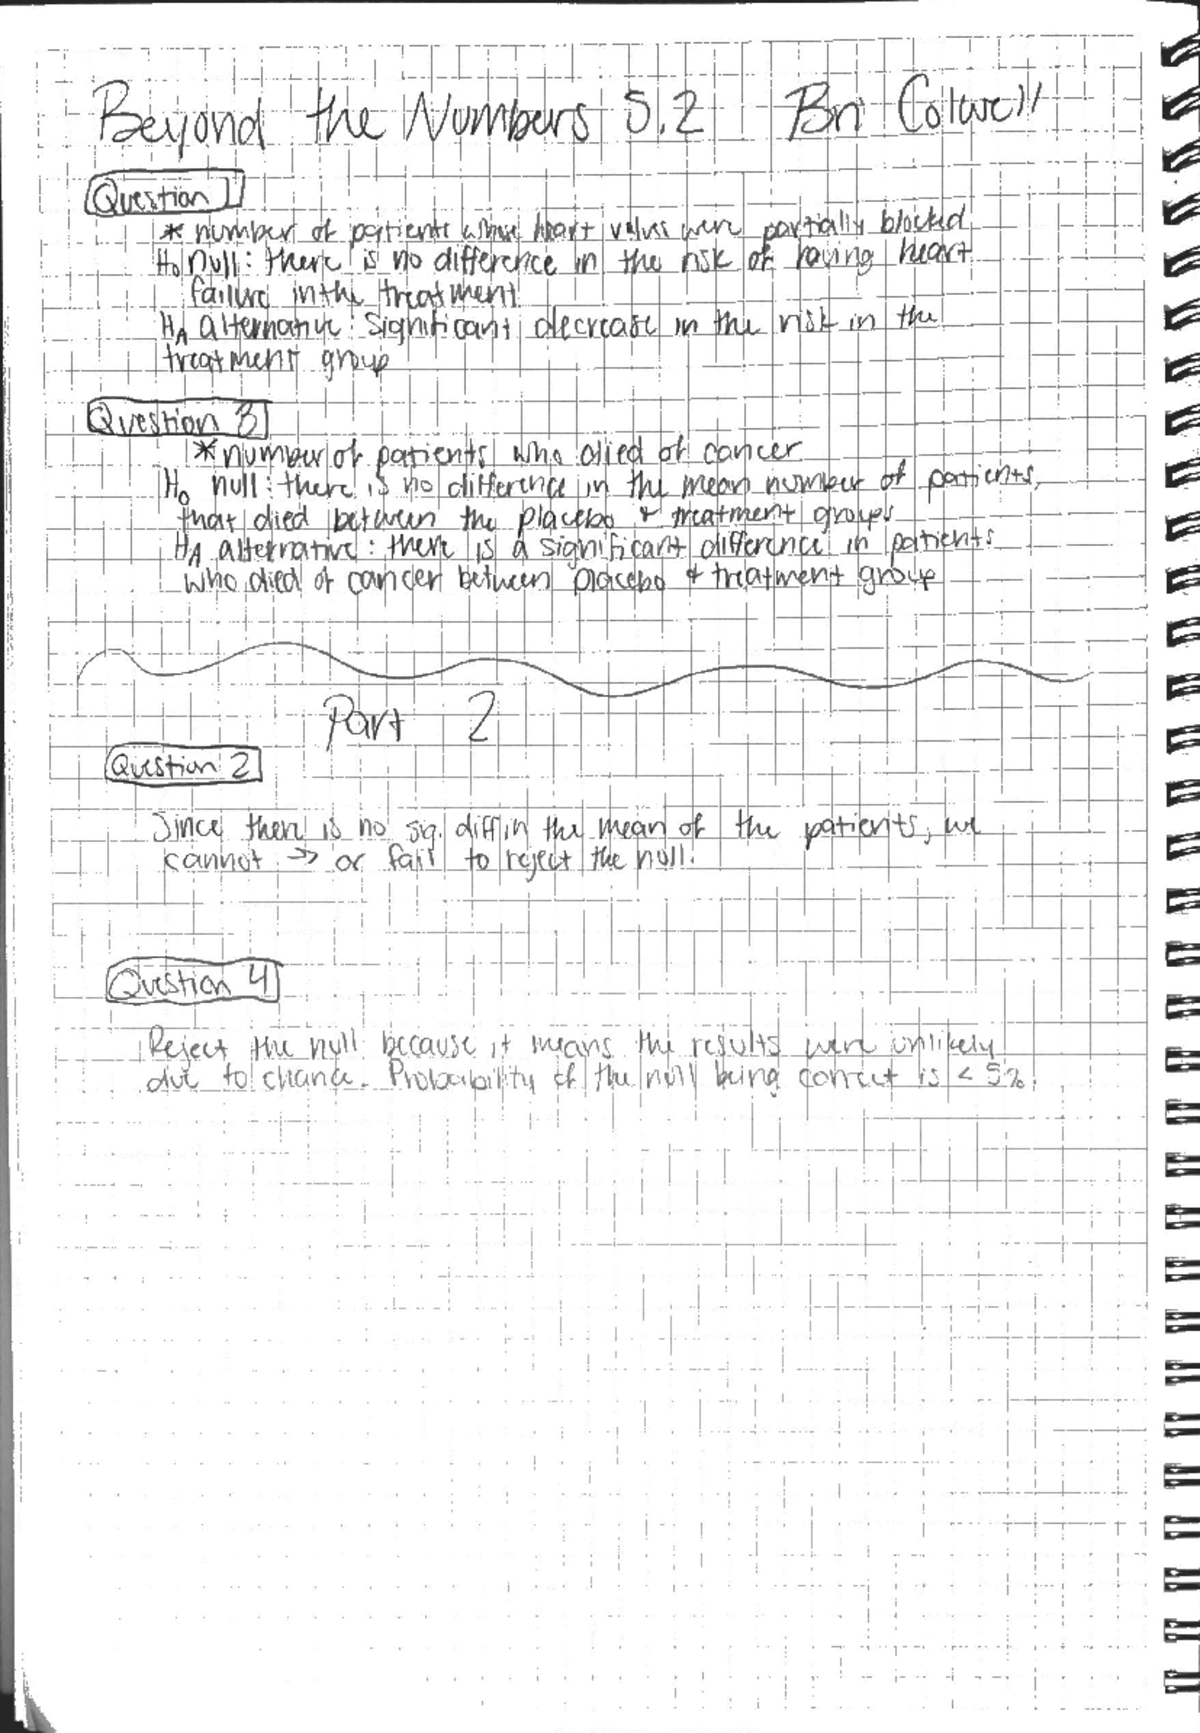 Beyond the Numbers 5.2 Bri Colwell
Question 1
* number of patients whose heart valves were partially blocked
H₀ null: there is no difference in the risk of having heart
failure in the treatment
H_A alternative: Significant decrease in the risk in the
treatment group
Question 3
* number of patients who died of cancer
H₀ null: there is no difference in the mean number of patients
that died between the placebo + treatment groups
H_A alternative: there is a significant difference in patients
who died of cancer between placebo + treatment group
Part 2
Question 2
Since there is no sig. diff in the mean of the patients, we
cannot → or fail to reject the null.
Question 4
Reject the null because it means the results were unlikely
due to chance. Probability of the null being correct is < 5%